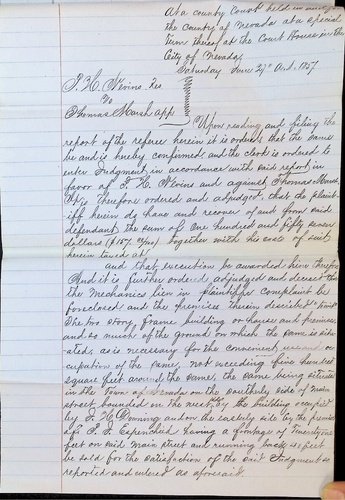 At a County Court held in and for
the County of Nevada at a special
term thereof at the Court House in the
City of Nevada,
Saturday June 27th A.D. 1857.
T. H. Nevins Res
vs
Thomas Marsh app
Upon reading and filing the
report of the referee herein it is ordered that the same
be and is hereby confirmed and the clerk is ordered to
enter Judgment in accordance with said report in
favor of T. H. Nevins and against Thomas Marsh.
It is therefore ordered and adjudged, that the plaint-
iff herein do have and recover of and from said
defendant the sum of One hundred and fifty seven
dollars ($157 ) together with his costs of suit
herein taxed at
and that execution be awarded him therefor
And it is further ordered adjudged and decreed that
the Mechanics lien in plaintiffs complaint be
foreclosed and the premises therein described
The two story frame building or house and premises
and so much of the ground on which the same is situ-
ated, as is necessary for the convenient use and oc-
cupation of the same, not exceeding five hundred
square feet around the same, the same being situate
in the town of Nevada on the southerly side of Main
street bounded on the west by the building occupied
by J. H. Dunning and on the easterly side by the premises
of P. J. Espenchid having a frontage of twenty one
feet on said main street and running back 45 feet
be sold for the satisfaction of the said Judgment as
reported and entered as aforesaid